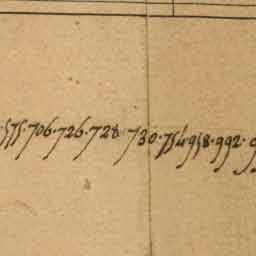 575·706·726·728·730·754·958·992·